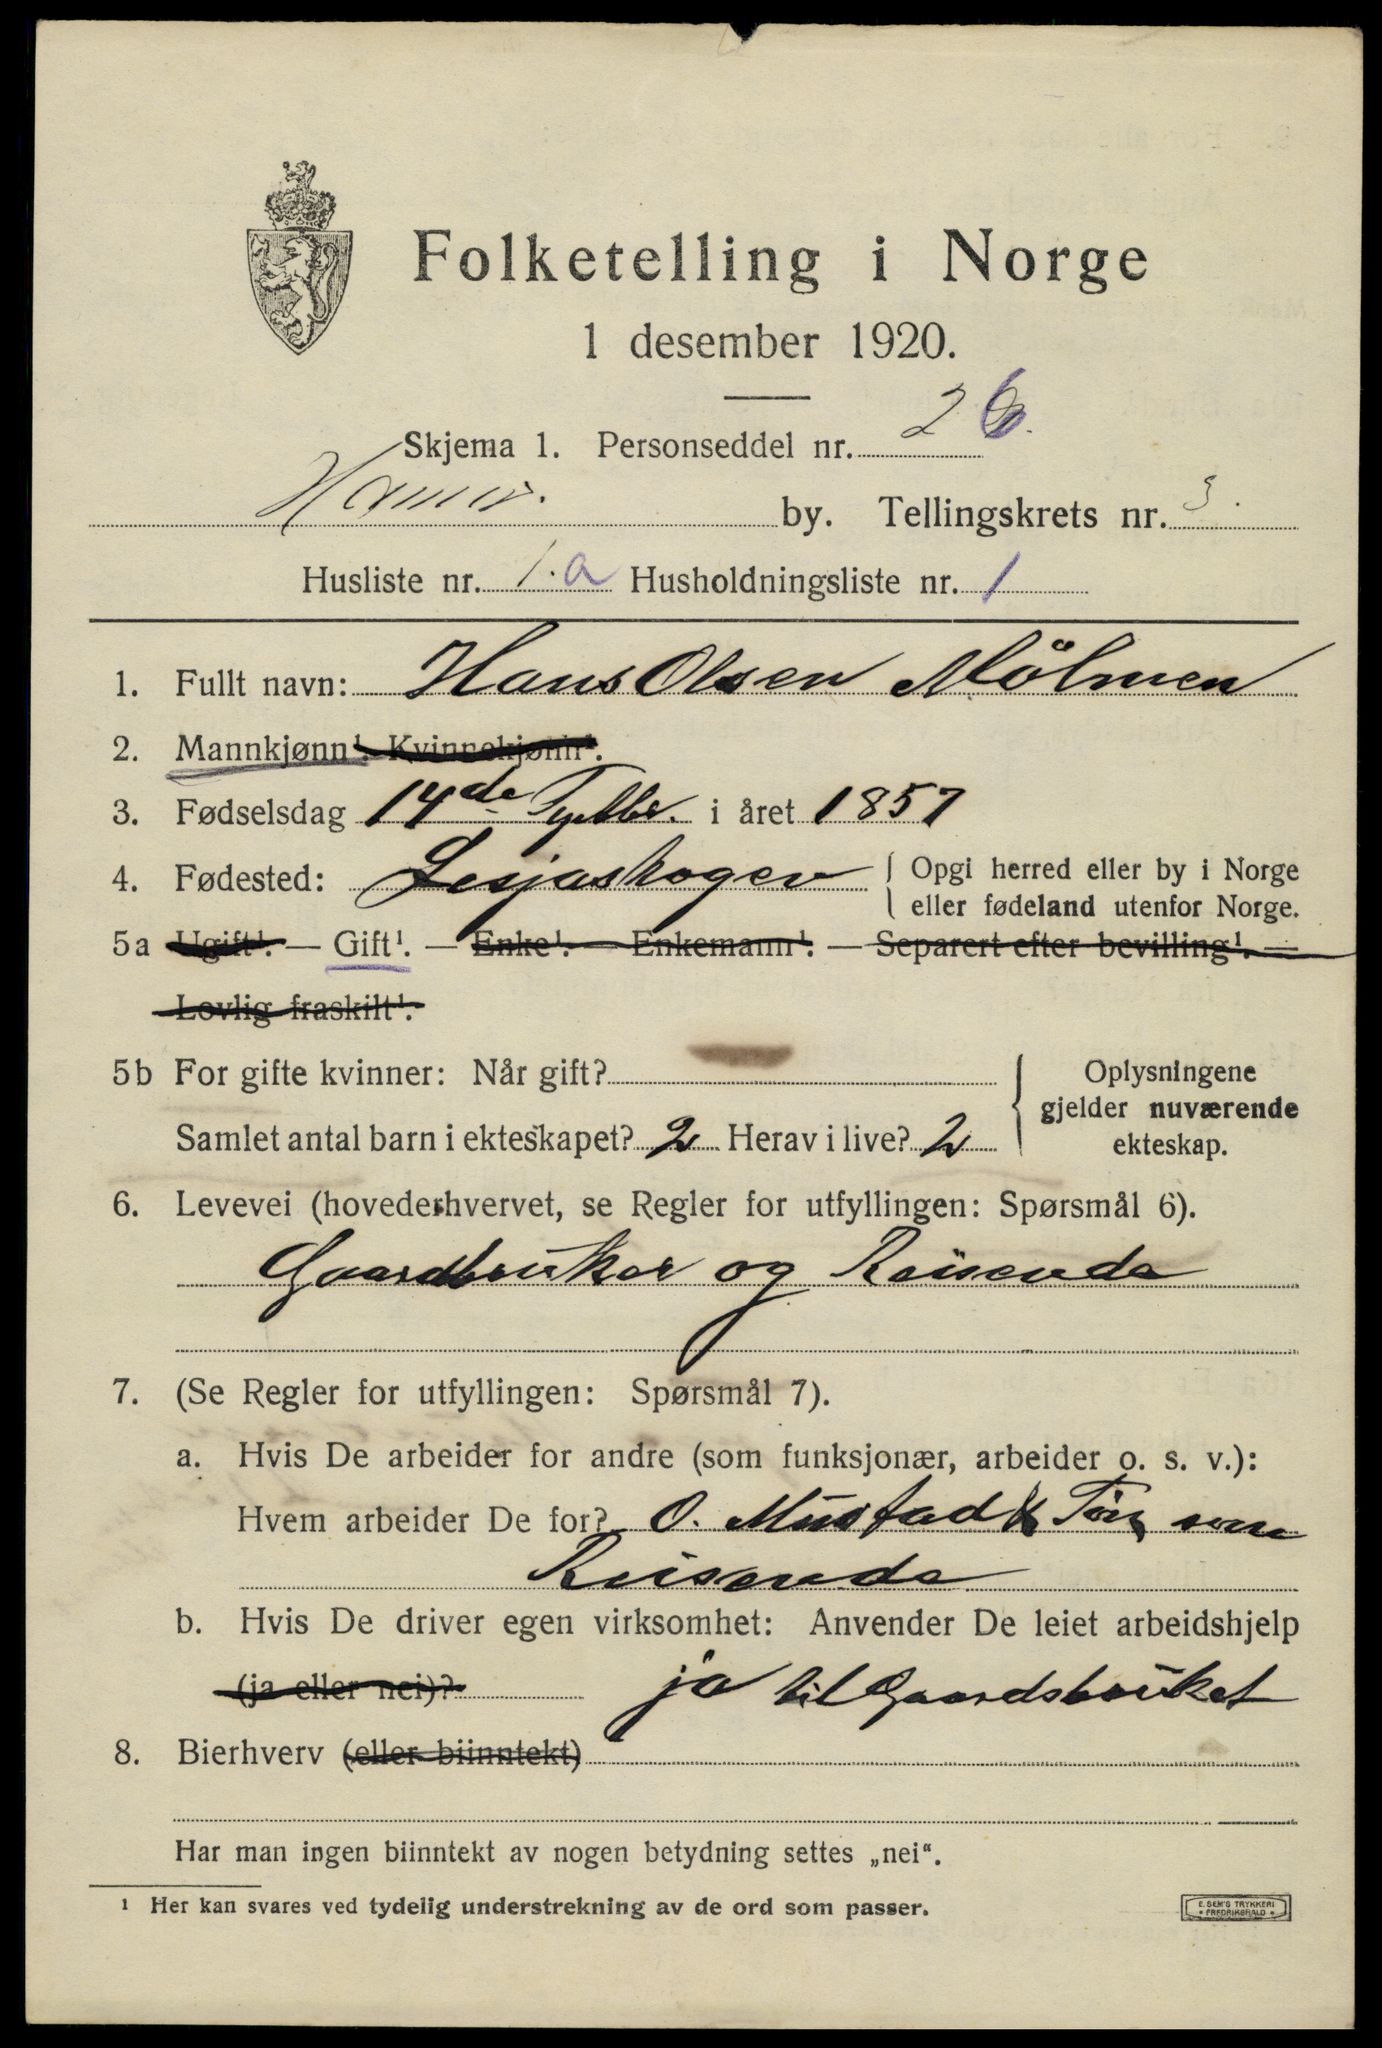 Folketelling i Norge
1 desember 1920.
Skjema 1. Personseddel nr. 26.
Hamar. by. Tellingskrets nr. 3.
Husliste nr. 1. a Husholdningsliste nr. 1
1. Fullt navn: Hans Olsen Mölmen
2. Mannkjønn¹. Kvinnekjønn¹.
3. Fødselsdag 14de i året 1857
4. Fødested: Lesjaskogen { Opgi herred eller by i Norge
eller fødeland utenfor Norge.
5a Ugift¹. — Gift¹. — Enke¹. — Enkemann¹. — Separert efter bevilling¹. —
Lovlig fraskilt¹.
5b For gifte kvinner: Når gift?
Samlet antal barn i ekteskapet? 2 Herav i live? 2
Oplysningene
gjelder nuværende
ekteskap.
6. Levevei (hovederhvervet, se Regler for utfyllingen: Spørsmål 6).
Gaardbruker og Reisende
7. (Se Regler for utfyllingen: Spørsmål 7).
a. Hvis De arbeider for andre (som funksjonær, arbeider o. s. v.):
Hvem arbeider De for? O. Mustad & som
Reisende
b. Hvis De driver egen virksomhet: Anvender De leiet arbeidshjelp
(ja eller nei)? ja til Gaardsbruket
8. Bierhverv (eller biinntekt)
Har man ingen biinntekt av nogen betydning settes „nei“.
¹ Her kan svares ved tydelig understrekning av de ord som passer.
E. SEM'S TRYKKERI
• FREDRIKSHALD •